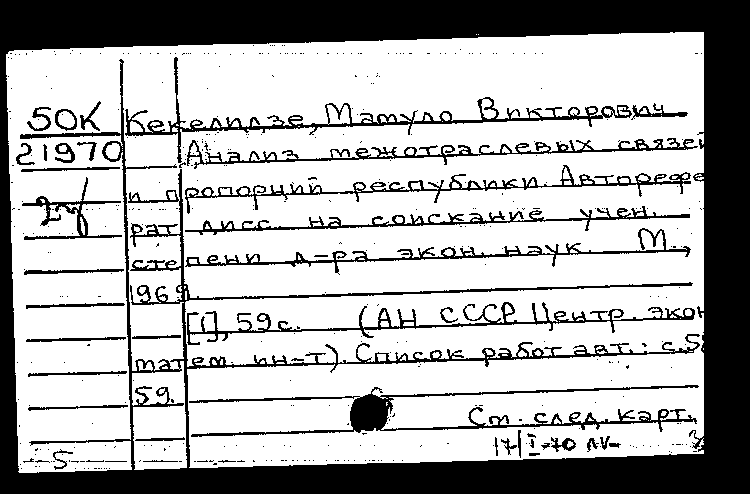 50К Кекелидзе, Матуло Викторович
21970 Анализ межотраслевых связей
и пропорций республики. Авторефе
рат дисс. на соискание учен.
степени д-ра экон. наук. М.,
1969.
[1], 59 с. (АН СССР. Центр. экон
матем. ин-т). Список работ авт.: с.58
59.
См. след. карт.
17/I-70
5